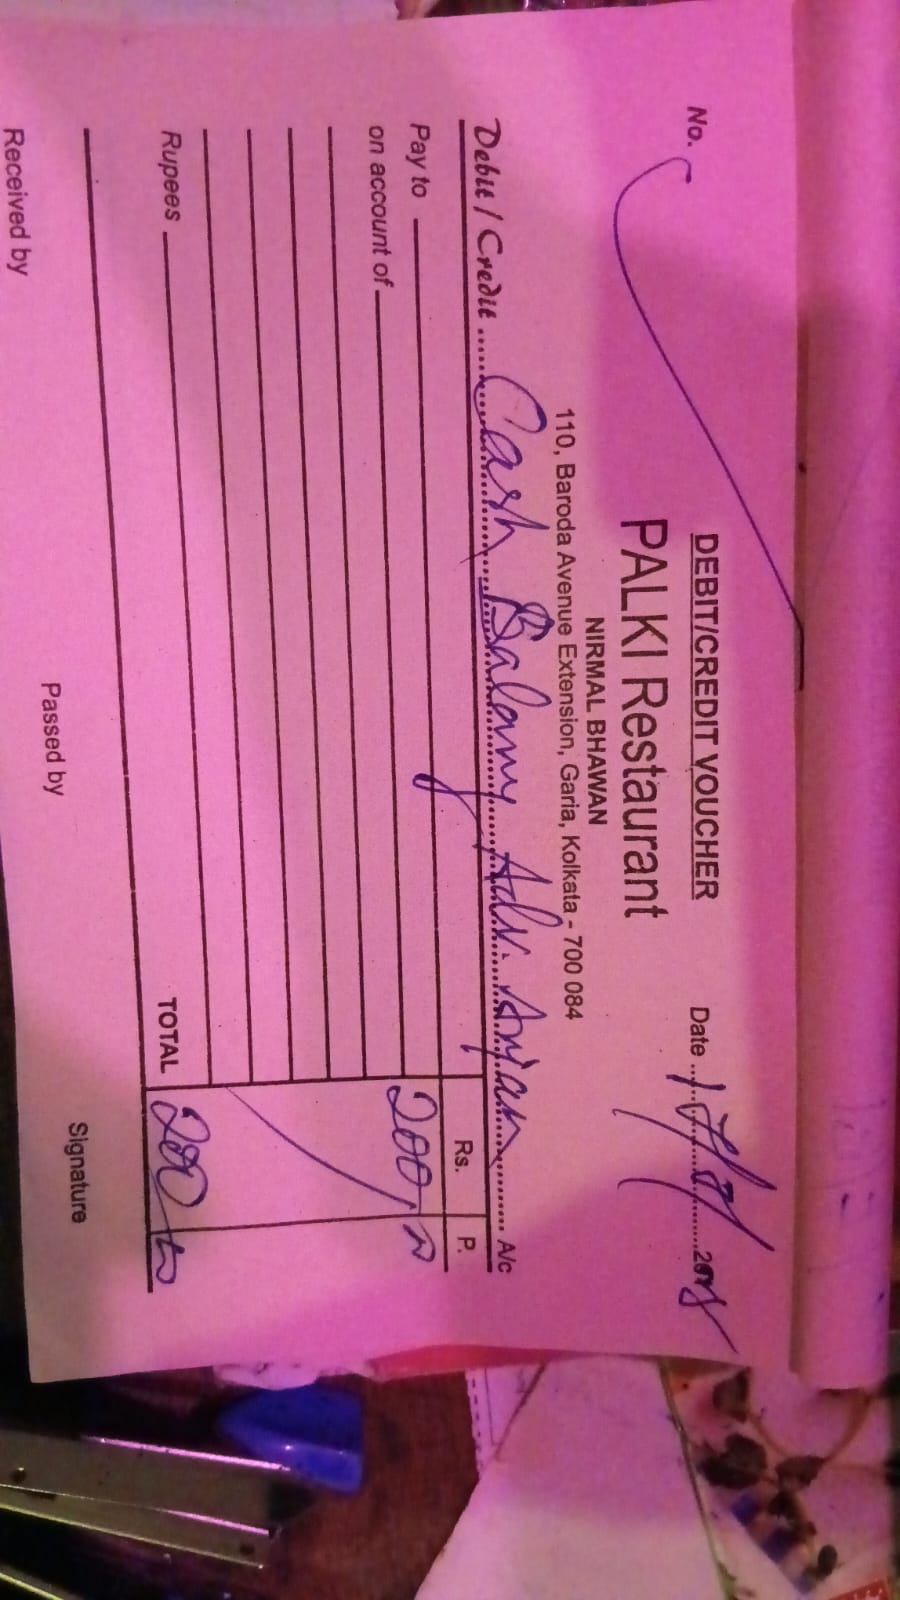 DEBIT/CREDIT VOUCHER
No.
PALKI Restaurant
Date
NIRMAL BHAWAN
110, Baroda Avenue Extension, Garia, Kolkata - 700 084
Debit / Credit Cash Salary Adv. A/c
Rs. P.
Pay to
on account of
200
Rupees
TOTAL 200
Received by Passed by Signature